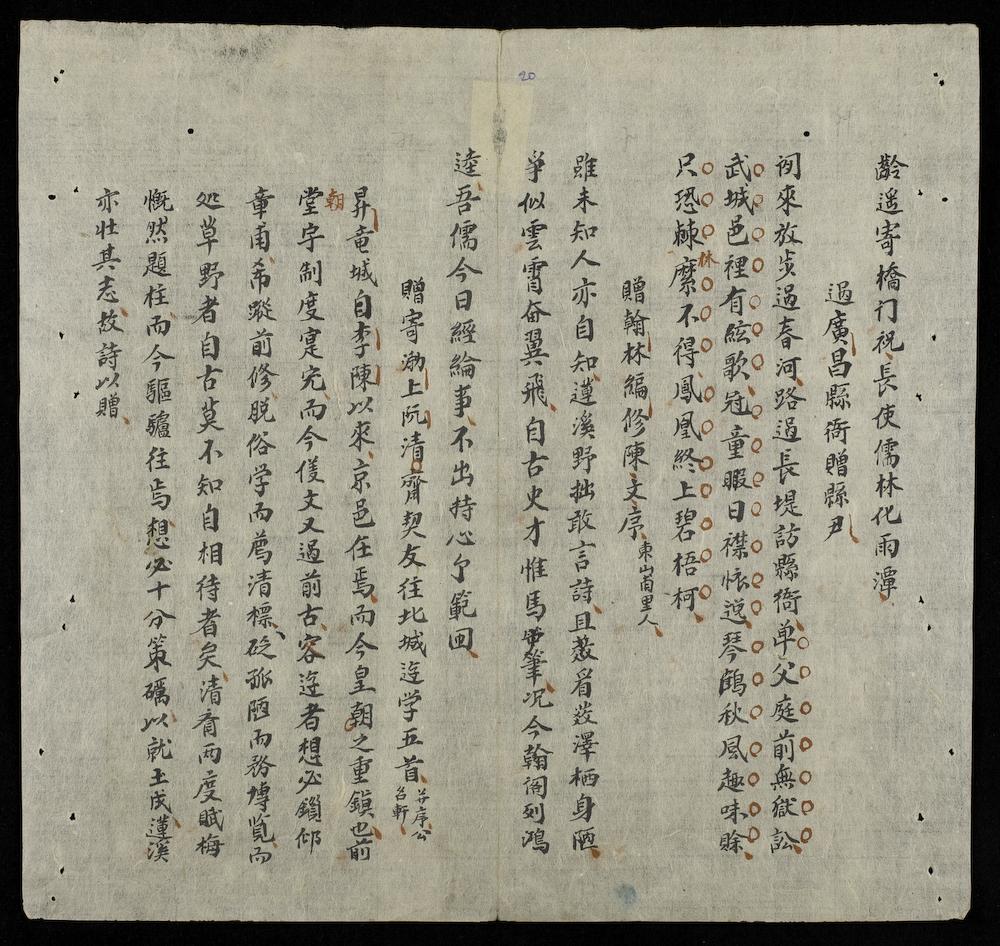 20
齡遥寄橋门祝長使儒林化雨潭
過廣昌縣衙贈縣尹
來放步過春河路過長堤訪縣衙单父庭前無獄訟
武城邑裡有絃歌冠童暇日襟懷説琴鹧秋風趣味賖
只恐棘麇不得鳳凰終上碧梧柯
林
贈翰林編修陳文序東山甫里人
雖未知人亦自知蓮溪野拙敢言詩且羞眉髮澤栖身陋
爭似雲霄奋翼飛自古史才惟馬筆况今翰阁列鴻
逵吾儒今日經綸事不出持心範囬
贈寄渤上阮清齋契友往北城遊学五首并序公名軒
昇竜城自李陳以來京邑任焉而今皇朝之重鎮也前
朝
堂宇制度寔完而今僅文又過前古容遊者想必鎖
章甫希蹤前修脱俗学而薦清標砭孤陋而務博览而
处草野者自古莫不知自相待者矣清齊兩度賦梅
慨然題柱而今驅驢往焉想必十分策礪以就玉成蓮溪
亦壮其志故詩以贈